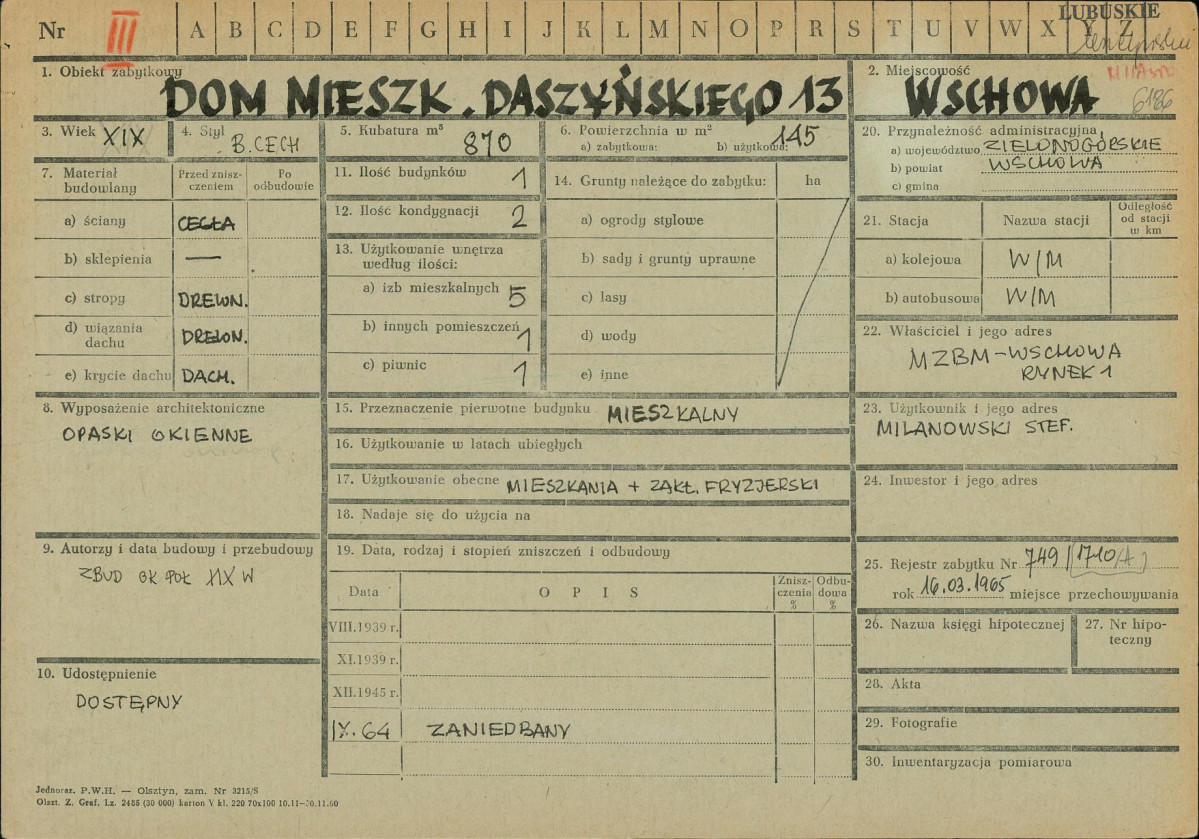 Nr III A B C D E F G H I J K L M N O P R S T U V W X Y Z LUBUSKIE
1. Obiekt zabytkowy
DOM MIESZK. DASZYŃSKIEGO 13
2. Miejscowość MIASTO
WSCHOWA 6186
3. Wiek XIX
4. Styl
B. CECH
5. Kubatura m³
870
6. Powierzchnia w m²
a) zabytkowa: b) użytkowa: 145
20. Przynależność administracyjna
a) województwo ZIELONOGÓRSKIE
b) powiat WSCHOWA
c) gmina
7. Materiał budowlany
Przed znisz-
czeniem
Po
odbudowie
a) ściany CEGŁA
b) sklepienia —
c) stropy DREWN.
d) wiązania
dachu DREWN.
e) krycie dachu DACH.
11. Ilość budynków 1
12. Ilość kondygnacji 2
13. Użytkowanie wnętrza
według ilości:
a) izb mieszkalnych 5
b) innych pomieszczeń 1
c) piwnic 1
14. Grunty należące do zabytku: ha
a) ogrody stylowe
b) sady i grunty uprawne
c) lasy
d) wody
e) inne
21. Stacja Nazwa stacji
Odległość
od stacji
w km
a) kolejowa W/M
b) autobusowa W/M
22. Właściciel i jego adres
MZBM-WSCHOWA
RYNEK 1
8. Wyposażenie architektoniczne
OPASKI OKIENNE
15. Przeznaczenie pierwotne budynku MIESZKALNY
16. Użytkowanie w latach ubiegłych
17. Użytkowanie obecne MIESZKANIA + ZAKŁ. FRYZJERSKI
18. Nadaje się do użycia na
23. Użytkownik i jego adres
MILANOWSKI STEF.
24. Inwestor i jego adres
9. Autorzy i data budowy i przebudowy
ZBUD OK POŁ XIX W
19. Data, rodzaj i stopień zniszczeń i odbudowy
Data OPIS
Znisz-
czenia
%
Odbu-
dowa
%
VIII.1939 r.
XI.1939 r.
XII.1945 r.
IX. 64 ZANIEDBANY
25. Rejestr zabytku Nr 749 (1710/A)
rok 16.03.1965 miejsce przechowywania
26. Nazwa księgi hipotecznej
27. Nr hipo-
teczny
10. Udostępnienie
DOSTĘPNY
28. Akta
29. Fotografie
30. Inwentaryzacja pomiarowa
Jednoraz. P.W.H. — Olsztyn, zam. Nr 3215/S
Olszt. Z. Graf. Lz. 2455 (30 000) karton V kl. 220 70x100 10.11—30.11.60